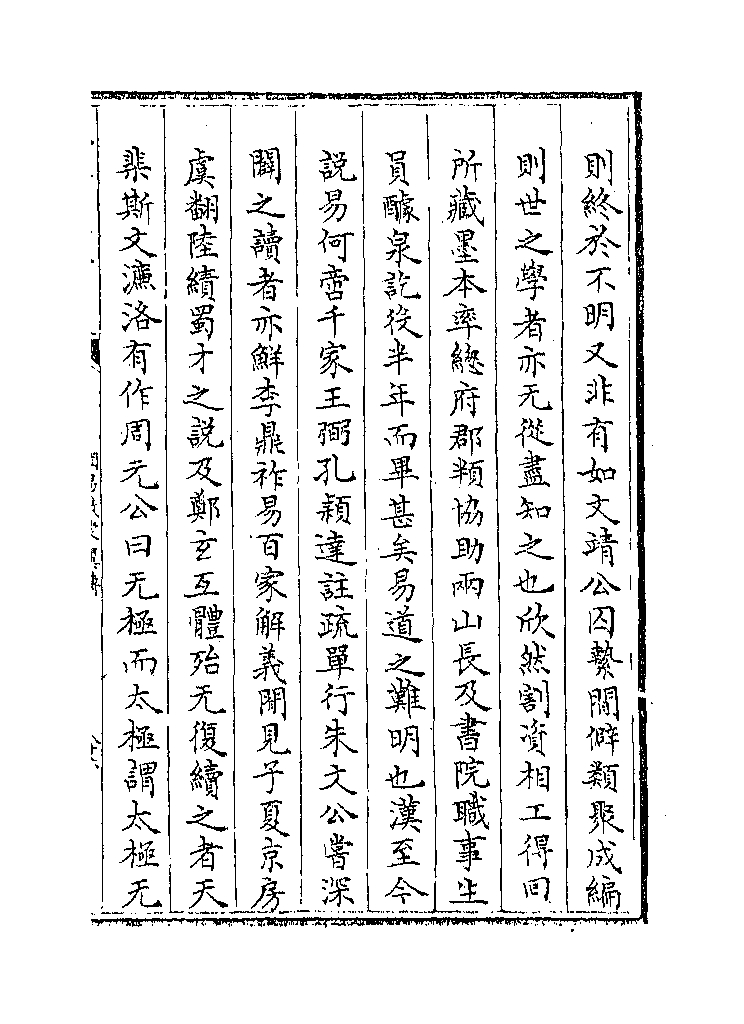 則終於不明又非有如文靖公囚繫閒僻類聚成編
則世之學者亦无從盡知之也欣然割資相工得回
所藏墨本率總府郡類協助兩山長及書院職事生
員醵泉訖役半年而畢甚矣易道之難明也漢至今
說易何啻千家王弼孔穎達註疏單行朱文公嘗深
闢之讀者亦鮮李鼎祚易百家解義閒見子夏京房
虞翻陸績蜀才之說及鄭玄互體殆无復續之者天
棐斯文濂洛有作周元公曰无極而太極謂太極无